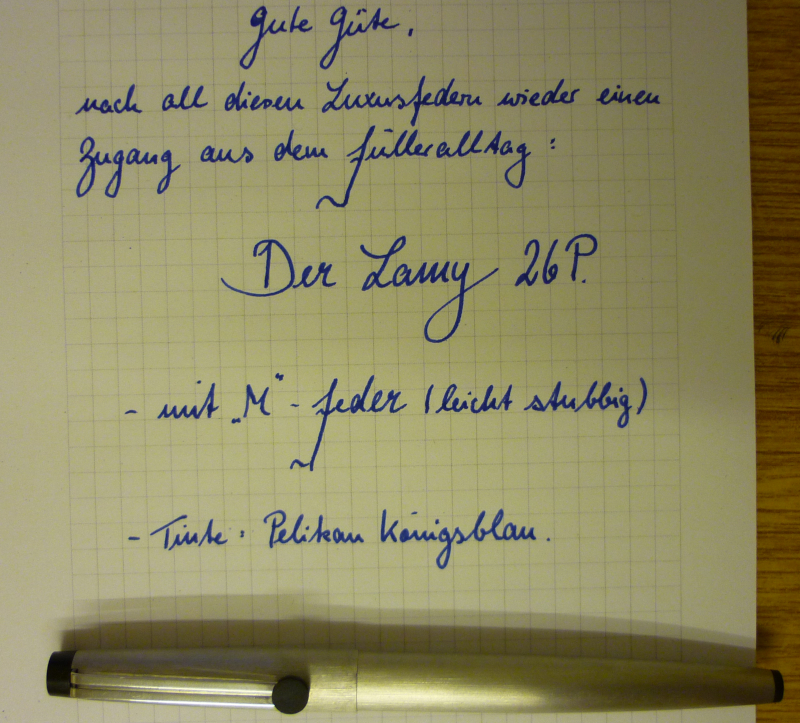 Gute Güte,
nach all diesen Luxusfedern wieder einen
Zugang aus dem Fülleralltag:
Der Lamy 26P.
- mit „M“-Feder (leicht stubbig)
- Tinte: Pelikan Königsblau.